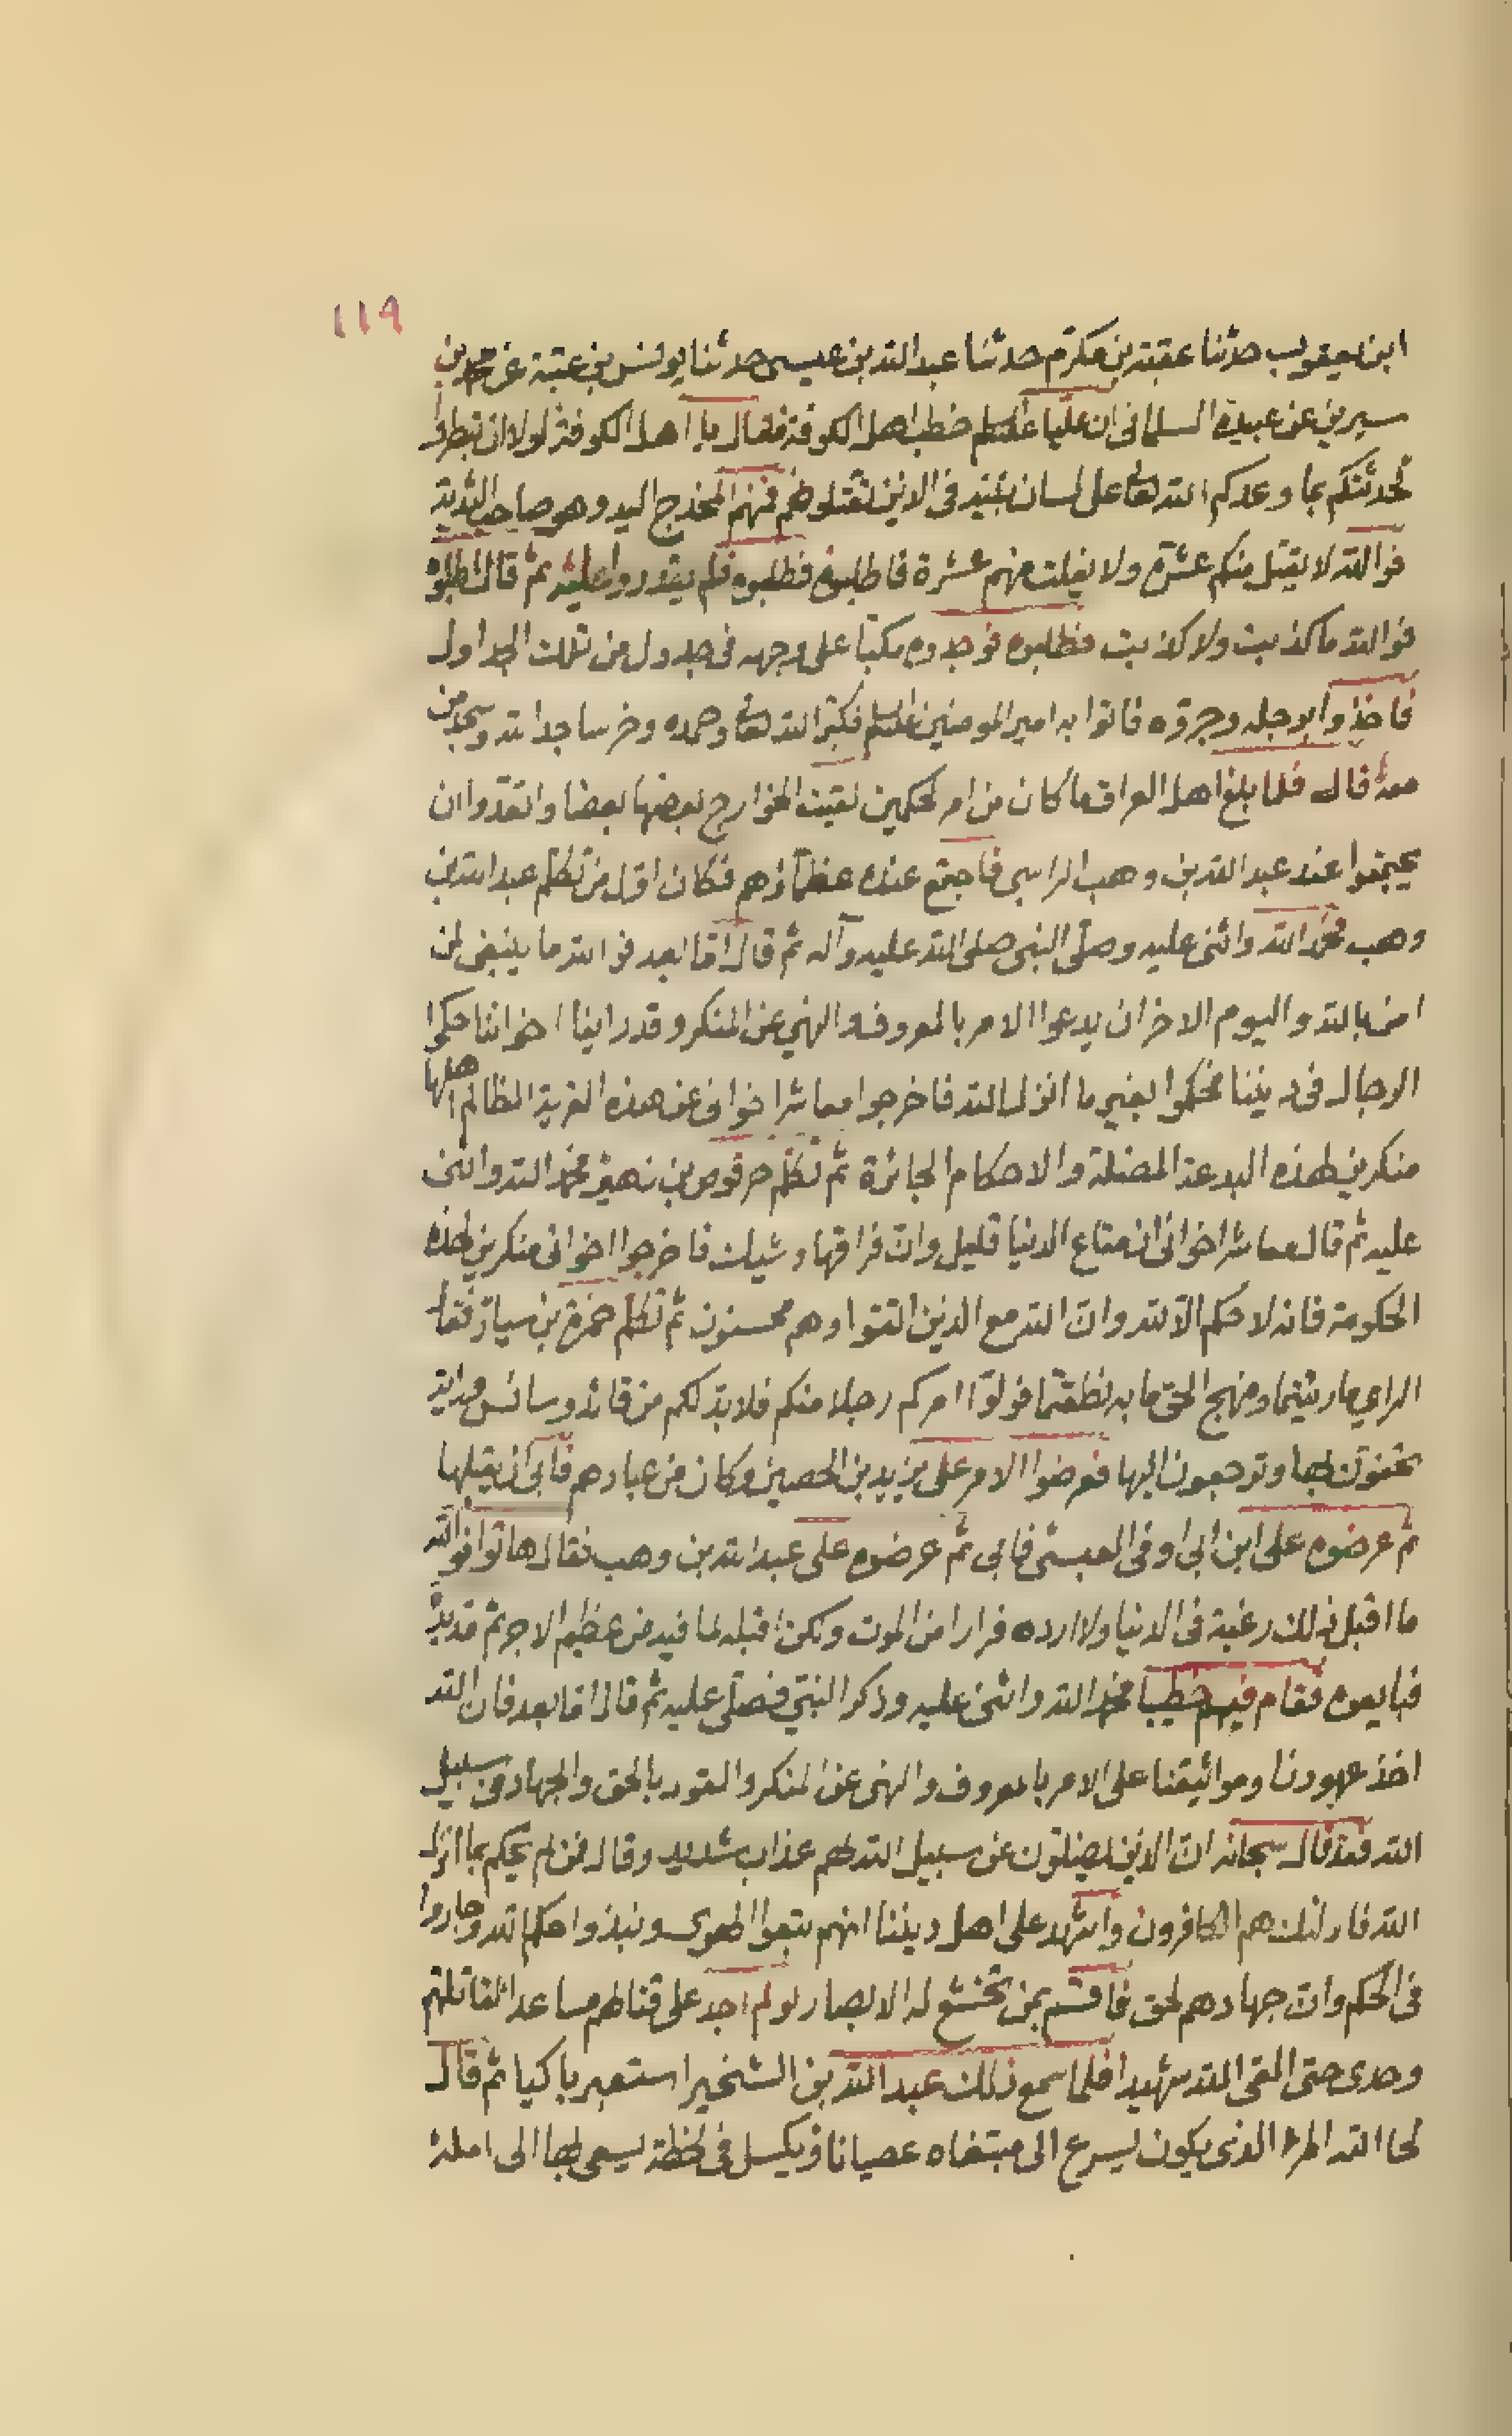 ١١٩
ابن يعقوب حدثنا عقبة بن مكرم حدثنا عبد الله بن عيسى حدثنا يونس بن عتبة عن محمد بن
سيرين عن عبيدة السلماني ان عليا عليه السلام خطب اهل الكوفة فقال يا اهل الكوفة لولا ان تبطروا
لحدثتكم بما وعدكم الله تعالى على لسان نبيه في الذين تقتلوهم فمنهم المخدج اليد وهو صاحب الثدية
فوالله لا يقتل منكم عشرة ولا يفلت منهم عشرة فاطلبوه فطلبوه فلم يقدروا عليه ثم قال اطلبوه
فوالله ما كذبت ولا كذبت فطلبوه فوجدوه مكبا على وجهه في جدول من تلك الجداول
فاخذوا برجله وجروه فاتوا به امير المومنين عليه السلام فكبر الله تعالى وحمده وخر ساجدا لله وسجد من
معه قال فلما بلغ اهل العراق ما كان من امر لحكمين لقيت الخوارج بعضها بعضا واتعدوا ان
يجتمعوا عند عبد الله بن وهب الراسبي فاجتمع عنده عظماؤهم فكان اول من تكلم عبد الله بن
وهب فحمد الله واثنى عليه وصلى النبي صلى الله عليه وآله ثم قال اما بعد فوالله ما ينبغي لمن
امن بالله واليوم الاخر ان يدعوا الامر بالمعروف والنهي عن المنكر وقد راينا اخواننا حكموا
الرجال في ديننا فحكموا بغير ما انزل الله فاخرجوا معاشر اخواني عن هذه القرية الظالم اهلها
منكرين لهذه البدعة المضلة والاحكام الجائرة ثم تكلم حرقوص بن زهير فحمد الله واثنى
عليه ثم قال معاشر اخواني ان متاع الدنيا قليل وان فراقها وشيك فاخرجوا اخواني منكرين لهذه
الحكومة فانه لا حكم الا لله وان الله مع الذين اتقوا وهم محسنون ثم تكلم حمزة بن سيار فقال
الراي ما رايتما ومنهج الحق ما به نطقتما فولوا امركم رجلا منكم فلا بد لكم من قائد وسائس وراية
تحفون لها وترجعون اليها فعرضوا الامر على يزيد بن الحصين وكان من عبادهم فابى ان يقبلها
ثم عرضوه على ابن ابي اوفى العبسي فابى ثم عرضوه على عبد الله بن وهب فقال هاتوا فوالله
ما اقبل ذلك رغبة في الدنيا ولا ارده فرارا من الموت ولكن اقبله لما فيه من عظيم الاجر ثم مد يده
فبايعوه فقام فيهم خطيبا فحمد الله واثنى عليه وذكر النبي فصلى عليه ثم قال اما بعد فان الله
اخذ عهودنا ومواثيقنا على الامر بالمعروف والنهي عن المنكر والقول بالحق والجهاد في سبيل
الله فقد قال سبحانه ان الذين يضلون عن سبيل الله لهم عذاب شديد وقال فمن لم يحكم بما انزل
الله فاولئك هم الكافرون واشهد على اهل ديننا انهم تتبعوا الهوى ونبذوا حكم الله وجاروا
في الحكم وان جهادهم لحق فاقسم بمن تخشع له الابصار لو لم اجد على قتالهم مساعدا لقاتلتهم
وحدى حتى القى الله شهيدا فلما سمع ذلك عبد الله بن الشخير استعبر باكيا ثم قال
لحا الله امرءا الذى يكون يسرع الى مبتغاه عصيانا ويكسل في لحظة يسعى لها الى امله